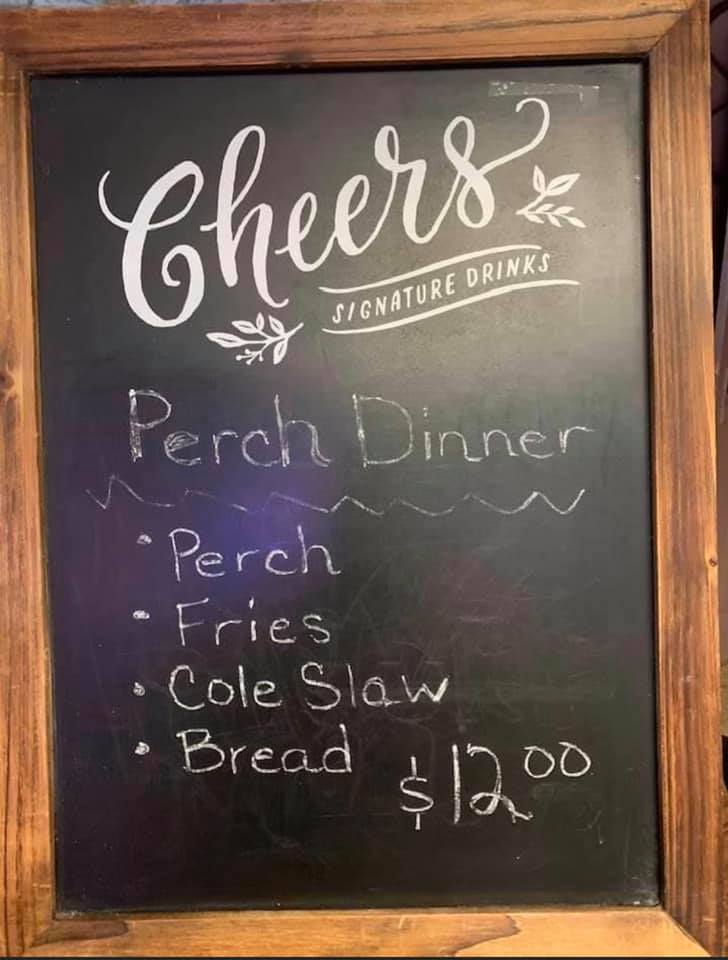 Cheers
SIGNATURE DRINKS
Perch Dinner
• Perch
• Fries
• Cole Slaw
• Bread
$12.00